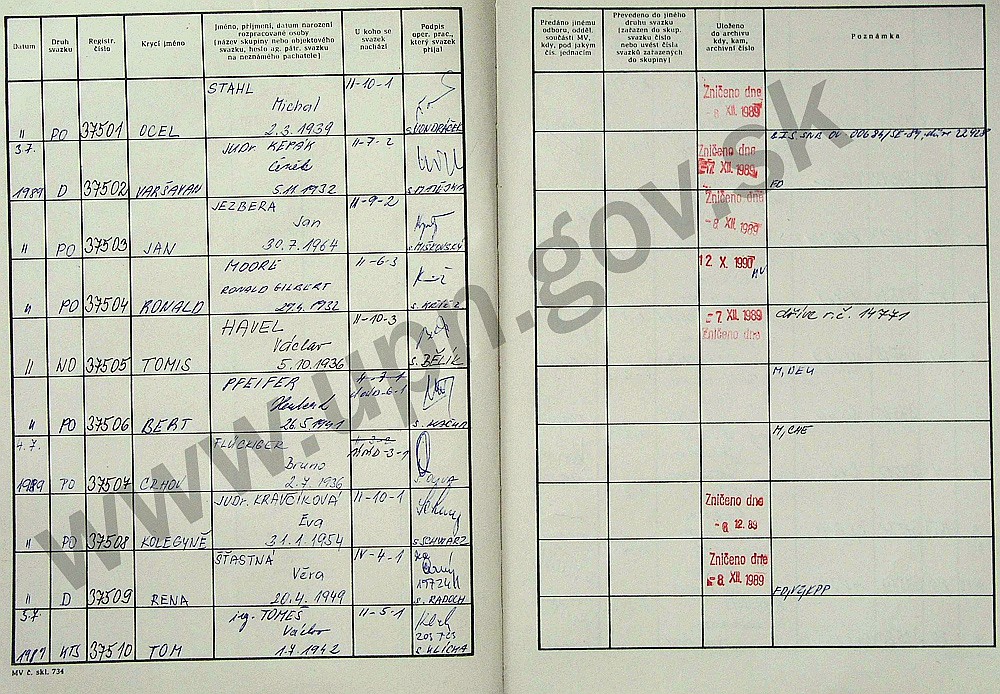 Datum
Druh
svazku
Registr.
číslo
Krycí jméno
Jméno, příjmení, datum narození
rozpracované osoby
(název skupiny nebo objektového
svazku, heslo ag. pátr. svazku
na neznámého pachatele)
U koho se
svazek
nachází
Podpis
oper. prac.,
který svazek
přijal
Předáno jinému
odboru, odděl.
součásti MV,
kdy, pod jakým
čís. jednacím
Převedeno do jiného
druhu svazku
(zařazen do skup.
svazku číslo
nebo uvést čísla
svazků zařazených
do skupiny)
Uloženo
do archivu
kdy, kam,
archivní číslo
Poznámka
STAHL II-10-1
Michal
" PO 37501 OCEL 2.3.1939 s. VONDRÁČEK
Zničeno dne
-8. XII. 1989
3.7. JUDr. KEPÁK II-7-2
Čeněk
1989 D 37502 VARŠAVAN 5.11.1932
Zničeno dne
XII. 1989
FO
JEZBERA II-9-2
Jan
" PO 37503 JAN 30.7.1964
Zničeno dne
-8. XII. 1989
MOORE II-6-3
RONALD GILBERT
" PO 37504 RONALD 1932
12 X. 1990
HAVEL II-10-3
Václav
" NO 37505 TOMIS 5.10.1936 s. BĚLÍK
-7. XII. 1989
Zničeno dne
dříve r.č. 14771
PFEIFER
" PO 37506 BERT 26.5.1941
M, DEU
4.7. FLÜCKIGER
Bruno
1989 PO 37507 2.7.1936
M, CHE
JUDr. KRAVČÍKOVÁ II-10-1
Eva
" PO 37508 KOLEGYNĚ 31.1.1954 s. SCHWARZ
Zničeno dne
-8. 12. 89
ŠŤASTNÁ IV-4-1
Věra
" D 37509 RENA 20.4.1949 s. RADOCH
Zničeno dne
-8. XII. 1989
5.7. ing. TOMEŠ II-5-1
Václav
1989 KTS 37510 TOM 1.7.1942 s. KLÍCHA
MV č. skl. 734
www.upn.gov.sk